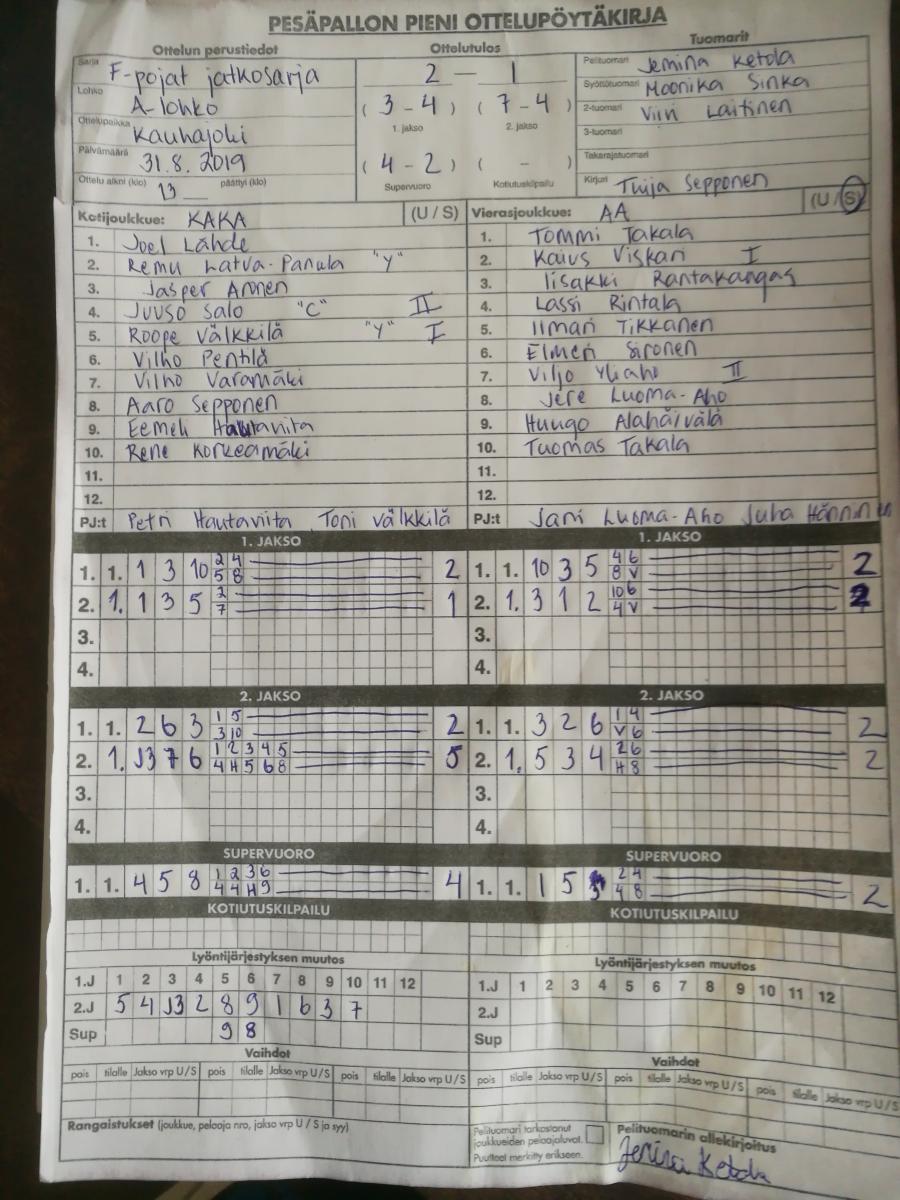 PESÄPALLON PIENI OTTELUPÖYTÄKIRJA
Ottelun perustiedot
Sarja F-pojat jatkosarja
Lohko A-lohko
Ottelupaikka Kauhajoki
Päivämäärä 31.8.2019
Ottelu alkoi (klo) 13 päättyi (klo)
Ottelutulos
2 — 1
(3 - 4) (7 - 4)
1. jakso 2. jakso
(4 - 2) ( - )
Supervuoro Kotiutuskilpailu
Tuomarit
Pelituomari Jemina Ketola
Syöttötuomari Moonika Sinka
2-tuomari Viiri Laitinen
3-tuomari
Takarajatuomari
Kirjuri Tuija Sepponen
Kotijoukkue: KAKA (U / S)
1. Joel Lähde
2. Remu Latva-Panula "Y"
3. Jasper Annen
4. Juuso Salo "C" II
5. Roope Välkkilä "Y" I
6. Vilho Penttilä
7. Vilho Varamäki
8. Aaro Sepponen
9. Eemeli Hautaviita
10. Rene Korkeamäki
11.
12.
PJ:t Petri Hautaviita Toni Välkkilä
Vierasjoukkue: AA (U / S)
1. Tommi Takala
2. Kaius Viskari I
3. Iisakki Rantakangas
4. Lassi Rintala
5. Ilmari Tikkanen
6. Elmeri Sironen
7. Viljo Yliaho II
8. Jere Luoma-Aho
9. Huugo Alahäivälä
10. Tuomas Takala
11.
12.
PJ:t Jani Luoma-Aho Juha Hänninen
1. JAKSO
1. 1. 1 3 10 2 4 2
5 8
2. 1. 1 3 5 2 1
7
3.
4.
1. JAKSO
1. 1. 10 3 5 4 6 2
8 V
2. 1. 3 1 2 10 6 2
4 V
3.
4.
2. JAKSO
1. 1. 2 6 3 1 5 2
3 10
2. 1. J3 7 6 1 2 3 4 5 5
4 H 5 6 8
3.
4.
2. JAKSO
1. 1. 3 2 6 1 4 2
V 6
2. 1. 5 3 4 2 6 2
H 8
3.
4.
SUPERVUORO
1. 1. 4 5 8 1 2 3 6 4
4 4 H 9
SUPERVUORO
1. 1. 1 5 2 4 2
4 8
KOTIUTUSKILPAILU
KOTIUTUSKILPAILU
Lyöntijärjestyksen muutos
1.J 1 2 3 4 5 6 7 8 9 10 11 12
2.J 5 4 J3 2 8 9 1 6 3 7
Sup 9 8
Lyöntijärjestyksen muutos
1.J 1 2 3 4 5 6 7 8 9 10 11 12
2.J
Sup
Vaihdot
pois tilalle Jakso vrp U/S pois tilalle Jakso vrp U/S pois tilalle Jakso vrp U/S
Vaihdot
pois tilalle Jakso vrp U/S pois tilalle Jakso vrp U/S pois tilalle Jakso vrp U/S
Rangaistukset (joukkue, pelaaja nro, jakso vrp U / S ja syy)
Pelituomari tarkastanut
joukkueiden pelaajaluvat.
Puutteet merkitty erikseen.
Pelituomarin allekirjoitus
Jemina Ketola